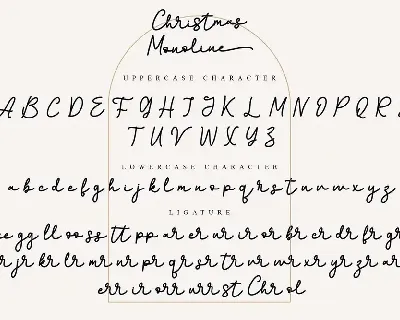 Christmas
Monoline
UPPERCASE CHARACTER
A B C D E F G H I J K L M N O P Q R
T U V W X Y Z
LOWERCASE CHARACTER
a b c d e f g h i j k l m n o p q r s t u v w x y z
LIGATURE
gg ll oo ss tt pp ar er ur ir or br cr dr fr
jr kr lr mr nr pr qr sr tr ur wr xr yr zr
err ir orr urr st Chr ol